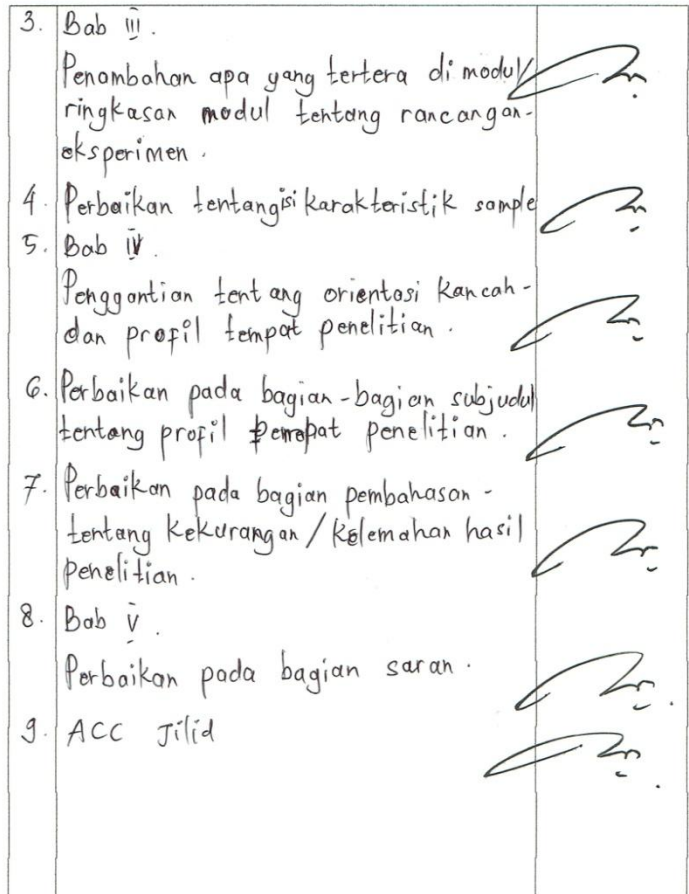 3. Bab III.
Penambahan apa yang tertera di modul/
ringkasan modul tentang rancangan-
eksperimen.
4. Perbaikan tentang isi karakteristik sample
5. Bab IV.
Penggantian tentang orientasi kancah-
dan profil tempat penelitian.
6. Perbaikan pada bagian-bagian subjudul
tentang profil tempat penelitian.
7. Perbaikan pada bagian pembahasan-
tentang kekurangan/kelemahan hasil
penelitian.
8. Bab V.
Perbaikan pada bagian saran.
9. ACC Jilid